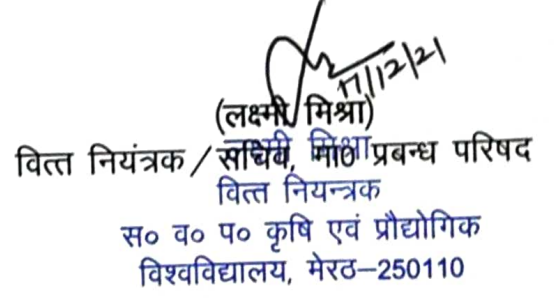 17/12/21
(लक्ष्मी मिश्रा)
वित्त नियंत्रक / सचिव, मा0 प्रबन्ध परिषद
लक्ष्मी मिश्रा
वित्त नियन्त्रक
स० व० प० कृषि एवं प्रौद्योगिक
विश्वविद्यालय, मेरठ-250110